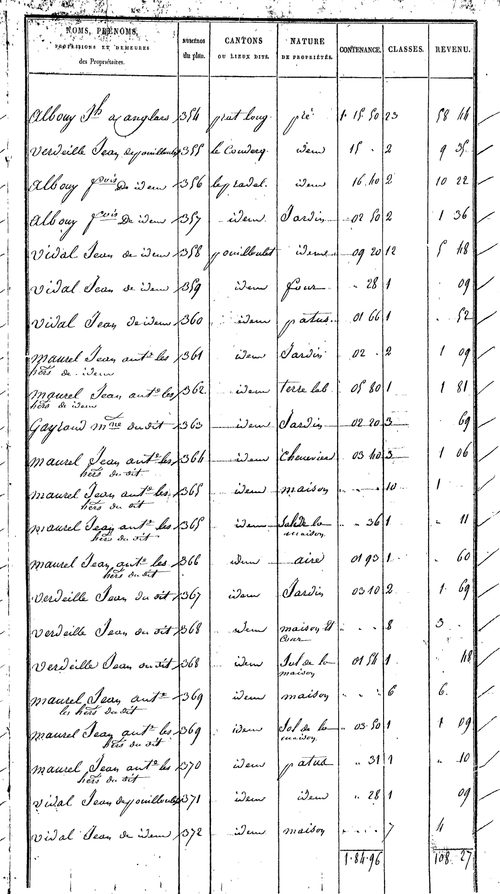 NOMS, PRÉNOMS, PROFESSIONS ET DEMEURES des Propriétaires. NUMÉROS du plan. CANTONS OU LIEUX DITS. NATURE DE PROPRIÉTÉS. CONTENANCE. CLASSES. REVENU.
Albouy Jh anglars 354 prat long pré 1. 15 50 23 58 44
Verdeille Jean de pouilloutet 355 le Couderq idem 15 . 2 9 35
Albouy fcois De idem 356 le pradel idem 16 40 2 10 22
Albouy fcois De idem 357 idem Jardin 02 50 2 1 36
Vidal Jean de idem 358 pouilloutet idem 09 20 12 5 48
Vidal Jean de idem 359 idem four . 28 1 09
Vidal Jean de idem 360 idem patus 01 66 1 . 52
maurel Jean ante les hers de idem 361 idem Jardin 02 . 2 1 09
maurel Jean ante les hers de idem 362 idem terre lab 05 80 1 1 81
Gayraud mne du dit 363 idem Jardin 02 20 3 69
maurel Jean ante les hers du dit 364 idem Chenevier 03 40 3 1 06
maurel Jean ante les hers du dit 365 idem maison . . . 10 1
maurel Jean ante les hers du dit 365 idem Sol de la maison . 36 1 . 11
maurel Jean ante les hers du dit 366 idem aire 01 93 1 . 60
Verdeille Jean du dit 367 idem Jardin 03 10 2 1 69
Verdeille Jean du dit 368 idem maison et Cour . . . 8 3
Verdeille Jean du dit 368 idem Sol de la maison 01 54 1 48
maurel Jean ante les hers du dit 369 idem maison . . . 6 6
maurel Jean ante les hers du dit 369 idem Sol de la maison 03 50 1 1 09
maurel Jean ante les hers du dit 370 idem patus . 31 1 . 10
Vidal Jean de pouilloutet 371 idem idem . 28 1 09
Vidal Jean de idem 372 idem maison . . . 7 4
1. 84. 96 108 27